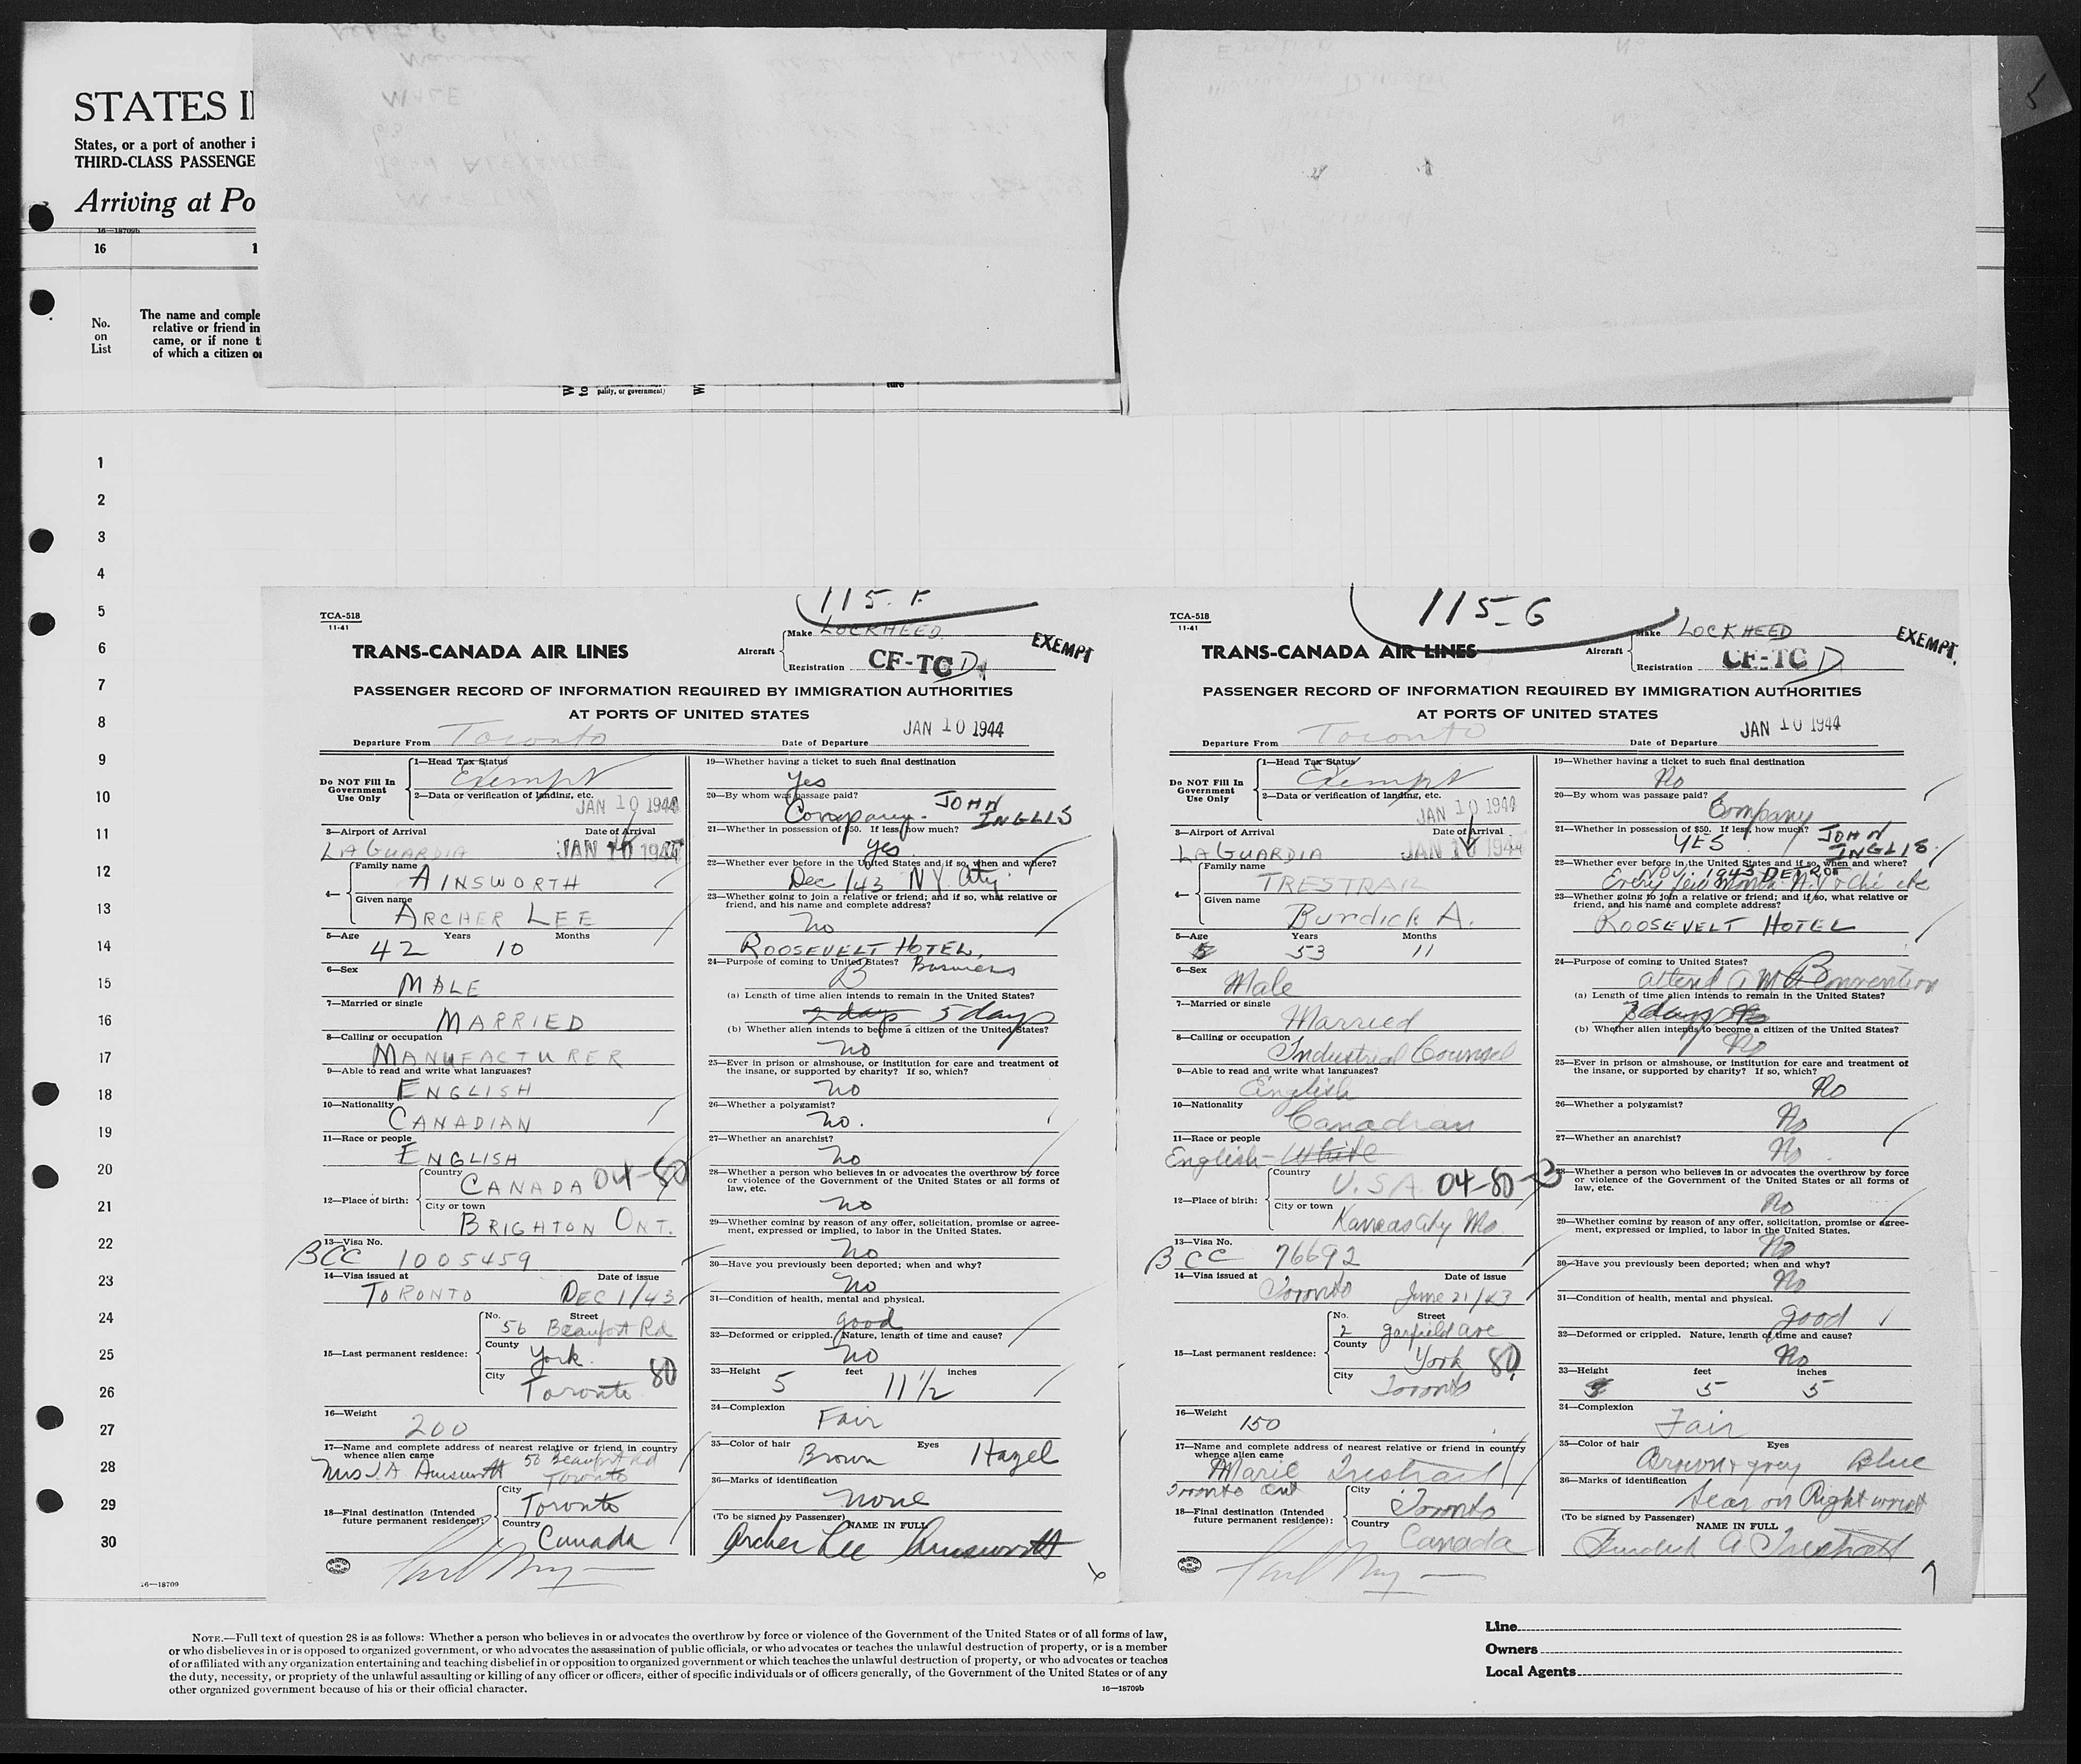 STATES I
States, or a port of another i
THIRD-CLASS PASSENGE
Arriving at Po
16—18709b
16 1
No.
on
List
The name and comple
relative or friend in
came, or if none t
of which a citizen o
pality, or government)
ture
5
1
2
3
4
5
6
7
8
9
10
11
12
13
14
15
16
17
18
19
20
21
22
23
24
25
26
27
28
29
30
16—18709
115-F
TCA-518
11-41
TRANS-CANADA AIR LINES
Aircraft
Make LOCKHEED
Registration CF-TCD
EXEMPT
PASSENGER RECORD OF INFORMATION REQUIRED BY IMMIGRATION AUTHORITIES
AT PORTS OF UNITED STATES
Departure From Toronto
Date of Departure JAN 10 1944
Do NOT Fill In
Government
Use Only
1—Head Tax Status
Exempt
2—Data or verification of landing, etc.
JAN 10 1944
3—Airport of Arrival Date of Arrival
LA GUARDIA JAN 10 1944
4— Family name
AINSWORTH
Given name
ARCHER LEE
5—Age Years Months
42 10
6—Sex
MALE
7—Married or single
MARRIED
8—Calling or occupation
MANUFACTURER
9—Able to read and write what languages?
ENGLISH
10—Nationality
CANADIAN
11—Race or people
ENGLISH
12—Place of birth: Country
CANADA 04-80
City or town
BRIGHTON ONT.
13—Visa No.
BCC 1005459
14—Visa issued at Date of issue
TORONTO DEC 1/43
15—Last permanent residence: No. Street
56 Beaufort Rd
County
York.
City
Toronto 80
16—Weight
200
17—Name and complete address of nearest relative or friend in country
whence alien came 56 Beaufort Rd
Mrs J.A Ainsworth Toronto
18—Final destination (Intended
future permanent residence): City
Toronto
Country
Canada
19—Whether having a ticket to such final destination
Yes
20—By whom was passage paid?
Company. JOHN INGLIS
21—Whether in possession of $50. If less, how much?
yes
22—Whether ever before in the United States and if so, when and where?
Dec /43 N.Y. City.
23—Whether going to join a relative or friend; and if so, what relative or
friend, and his name and complete address?
no
ROOSEVELT HOTEL,
24—Purpose of coming to United States? Business
B
(a) Length of time alien intends to remain in the United States?
2 days 5 days
(b) Whether alien intends to become a citizen of the United States?
no
25—Ever in prison or almshouse, or institution for care and treatment of
the insane, or supported by charity? If so, which?
no
26—Whether a polygamist?
no.
27—Whether an anarchist?
no
28—Whether a person who believes in or advocates the overthrow by force
or violence of the Government of the United States or all forms of
law, etc.
no
29—Whether coming by reason of any offer, solicitation, promise or agree-
ment, expressed or implied, to labor in the United States.
no
30—Have you previously been deported; when and why?
no
31—Condition of health, mental and physical.
good
32—Deformed or crippled. Nature, length of time and cause?
no
33—Height feet inches
5 11 1/2
34—Complexion
Fair
35—Color of hair Eyes
Brown Hazel
36—Marks of identification
none
(To be signed by Passenger) NAME IN FULL
Archer Lee Ainsworth
6
115-G
TCA-518
11-41
TRANS-CANADA AIR LINES
Aircraft
Make LOCKHEED
Registration CF-TCD
EXEMPT.
PASSENGER RECORD OF INFORMATION REQUIRED BY IMMIGRATION AUTHORITIES
AT PORTS OF UNITED STATES
Departure From Toronto
Date of Departure JAN 10 1944
Do NOT Fill In
Government
Use Only
1—Head Tax Status
Exempt
2—Data or verification of landing, etc.
JAN 10 1944
3—Airport of Arrival Date of Arrival
LA GUARDIA JAN 10 1944
4— Family name
TRESTRAIL
Given name
Burdick A.
5—Age Years Months
53 11
6—Sex
Male
7—Married or single
Married
8—Calling or occupation
Industrial Counsel
9—Able to read and write what languages?
English
10—Nationality
Canadian
11—Race or people
English - White
12—Place of birth: Country
U.S.A. 04-80-3
City or town
Kansas City Mo
13—Visa No.
BCC 76692
14—Visa issued at Date of issue
Toronto June 21/43
15—Last permanent residence: No. Street
2 Garfield ave
County
York 80
City
Toronto
16—Weight
150
17—Name and complete address of nearest relative or friend in country
whence alien came
Marie Trestrail
Toronto Ont
18—Final destination (Intended
future permanent residence): City
Toronto
Country
Canada
19—Whether having a ticket to such final destination
No
20—By whom was passage paid?
Company
21—Whether in possession of $50. If less, how much?
YES JOHN INGLIS
22—Whether ever before in the United States and if so, when and where?
NOV. 1943 DETROIT
Every few months N.Y & Chi etc
23—Whether going to join a relative or friend; and if so, what relative or
friend, and his name and complete address?
ROOSEVELT HOTEL
24—Purpose of coming to United States?
attend A M A Convention
(a) Length of time alien intends to remain in the United States?
3 days
(b) Whether alien intends to become a citizen of the United States?
No
25—Ever in prison or almshouse, or institution for care and treatment of
the insane, or supported by charity? If so, which?
No
26—Whether a polygamist?
No
27—Whether an anarchist?
No
28—Whether a person who believes in or advocates the overthrow by force
or violence of the Government of the United States or all forms of
law, etc.
No
29—Whether coming by reason of any offer, solicitation, promise or agree-
ment, expressed or implied, to labor in the United States.
No
30—Have you previously been deported; when and why?
No
31—Condition of health, mental and physical.
good
32—Deformed or crippled. Nature, length of time and cause?
No
33—Height feet inches
5 5
34—Complexion
Fair
35—Color of hair Eyes
Brown & grey Blue
36—Marks of identification
Scar on Right wrist
(To be signed by Passenger) NAME IN FULL
Burdick A. Trestrail
7
NOTE.—Full text of question 28 is as follows: Whether a person who believes in or advocates the overthrow by force or violence of the Government of the United States or of all forms of law,
or who disbelieves in or is opposed to organized government, or who advocates the assassination of public officials, or who advocates or teaches the unlawful destruction of property, or is a member
of or affiliated with any organization entertaining and teaching disbelief in or opposition to organized government or which teaches the unlawful destruction of property, or who advocates or teaches
the duty, necessity, or propriety of the unlawful assaulting or killing of any officer or officers, either of specific individuals or of officers generally, of the Government of the United States or of any
other organized government because of his or their official character.
16—18709b
Line
Owners
Local Agents